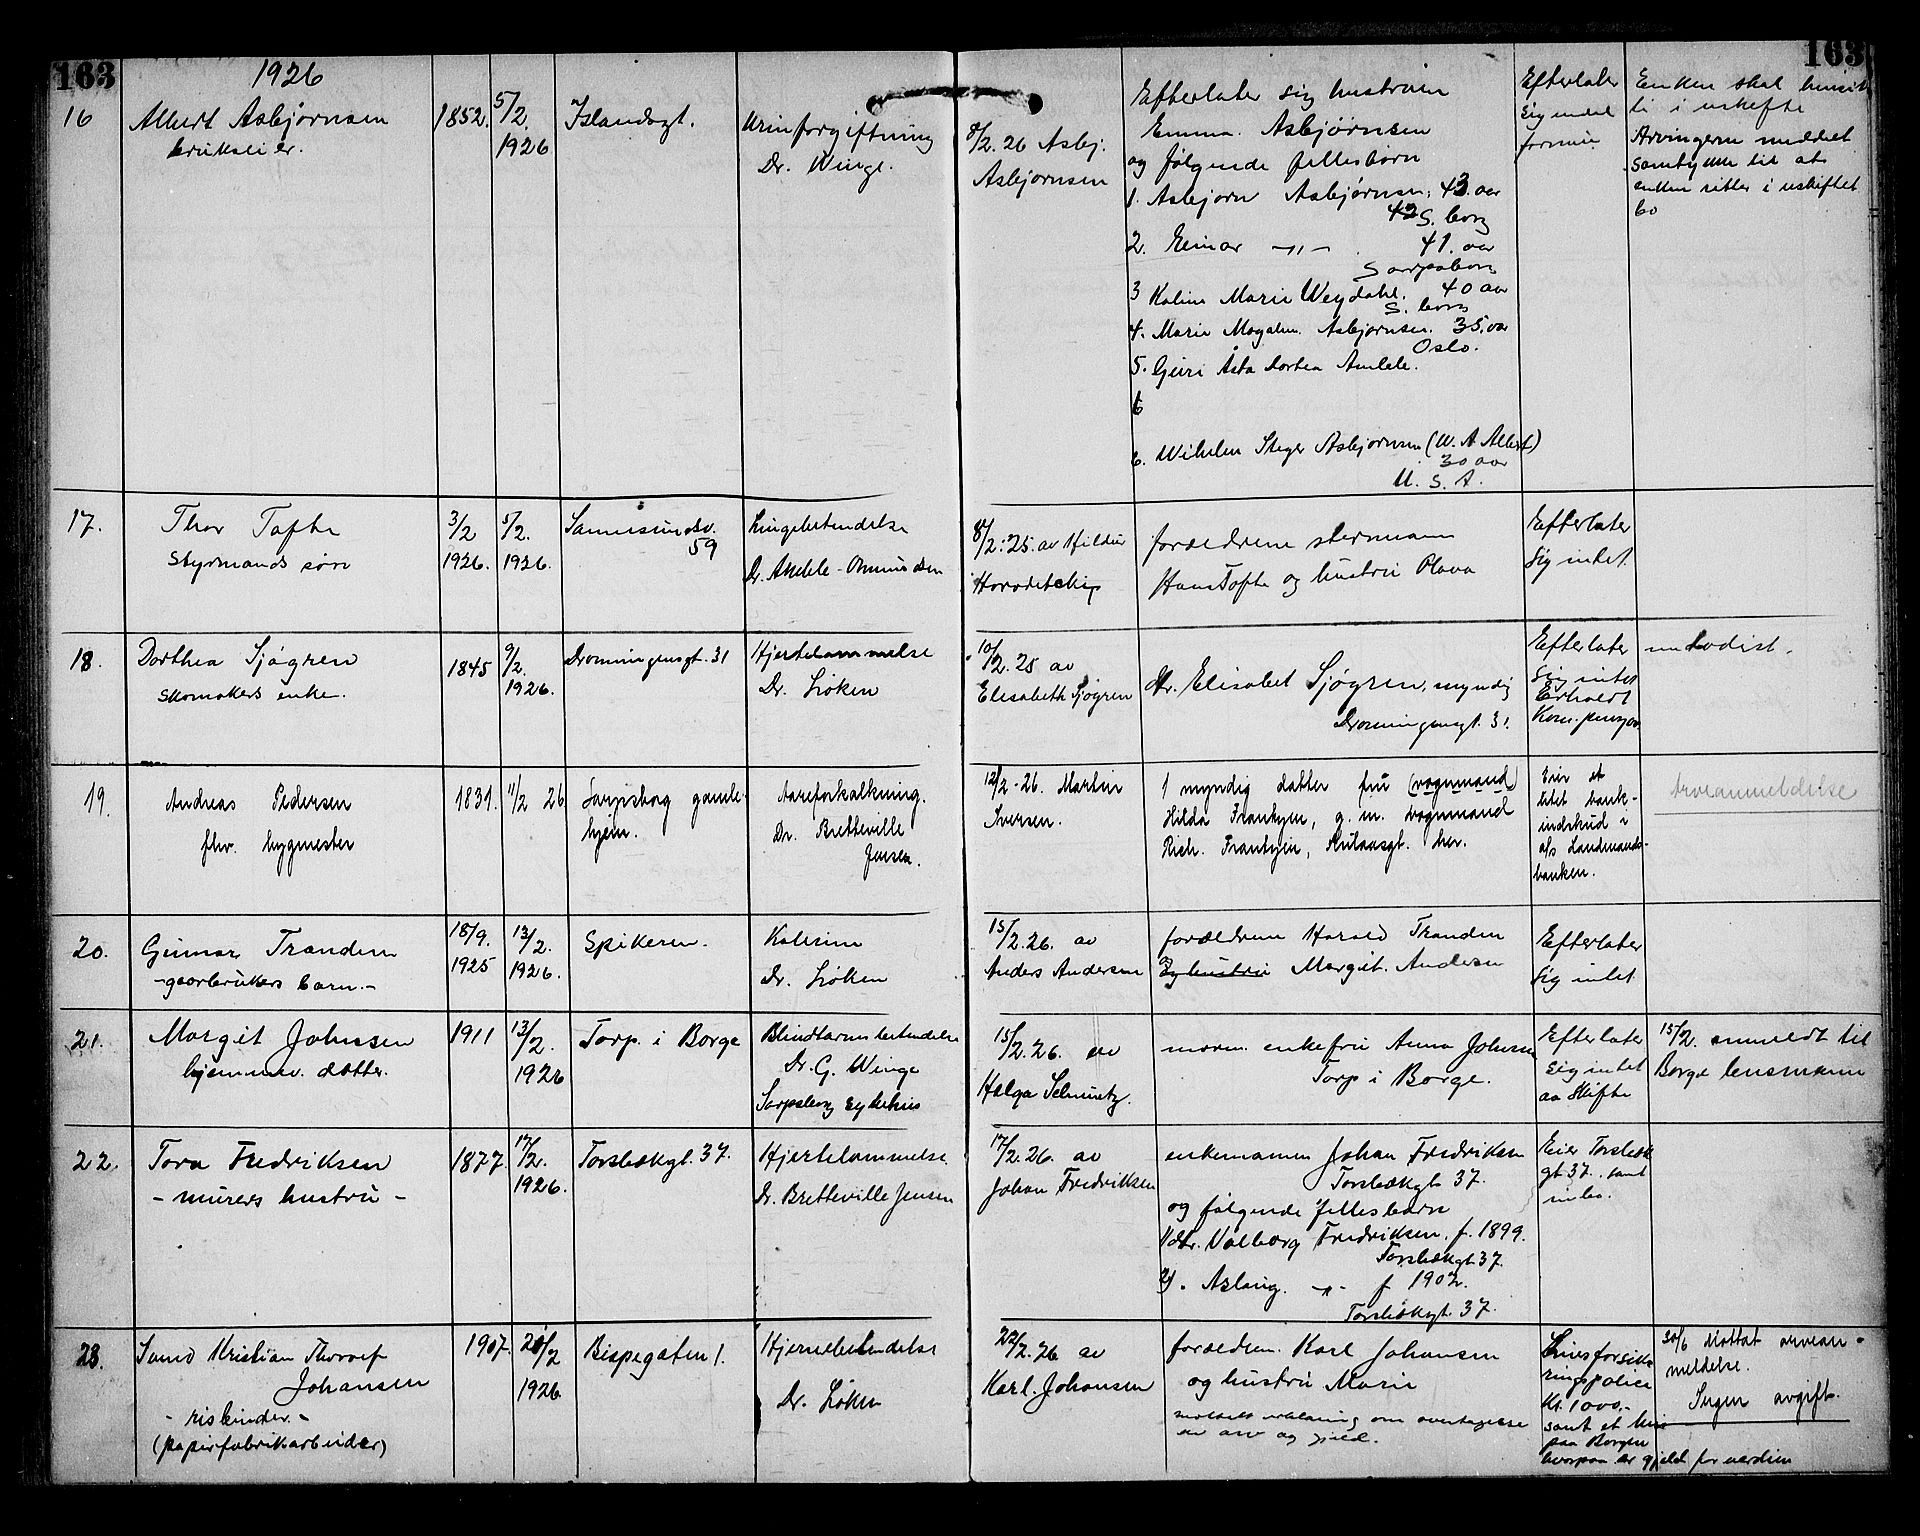 163
163
1926
16
Albert Asbjørnsen
brukseier.
1852.
5/2.
1926
Islandsgt.
Urinforgiftning
Dr. Winge.
8/2. 26 Asbj.
Asbjørnsen
Efterlater sig hustruen
Emma Asbjørnsen
og følgende fellesbørn
1. Asbjørn Asbjørnsen, 43. aar
S. borg
2. Einar —„— 41. aar
Sarpsborg
3 Kaline Marie Weydahl. 40 aar
S. borg
4. Marie Magalen. Asbjørnsen. 35. aar
Oslo.
5. Guri Åsta Dortea
6. Wilhelm Steger Asbjørnsen (W. A Albert)
30 aar
U. S. A.
Efterlater
sig endel
formue
Enken skal
i uskifte
Arvingerne meddelt
samtykke til at
enken sitter i uskiftet
bo
17.
Thor Tofte
Styrmands søn
3/2
1926.
5/2.
1926.
Sannesundsv.
59
Lungebetendelse
Dr. Amdele-Omundsen
8/2. 25. av Hildur
forældrene
Hans Tofte og hustru Olava
Efterlater
sig intet.
18.
Dorthea Sjøgren
skomakers enke.
1845
9/2.
1926.
Dronningensgt. 31
Hjertelammelse
Dr. Løken
10/2. 25 av
Elisabeth Sjøgren
dtr. Elisabet Sjøgren, myndig
Dronningensgt. 31.
Efterlater
sig intet
Erholdt
Kom. pensjon
metodist.
19.
Andreas Pedersen
fhv. bygmester
1831.
11/2 26
Sarpsborg gamle-
hjem.
Aareforkalkning.
Dr. Bretteville
Jensen.
12/2-26. Martin
Iversen.
1 myndig datter fru (vognmand)
Hilda Frantzen, g. m. vognmand
Rich. Frantzen, Kulaasgt. her.
Eier et
litet bank-
indskud i
a/s Landmands-
banken.
Arveanmeldelse
20.
Gunnar Tranden
-gaarbrukers barn.-
18/9.
1925
13/2.
1926.
Spikeren.
Kolerine
Dr. Løken
15/2. 26. av
Anders Andersen
forældrene Harald Tranden
og hustru Margit. Andersen
Efterlater
sig intet
21.
Margit Johnsen
hjemmev. datter.
1911
13/2.
1926
Torp. i Borge
Blindtarmsbetendelse
Dr. G. Winge
Sarpsborg sykehus
15/2. 26. av
Helga Schmetz.
moren. enkefru Anna Johnsen
Torp i Borge.
Efterlater
sig intet
aa skifte
15/2. anmeldt til
Borge lensmann
22.
Tora Fredriksen
- murers hustru -
1877.
17/2.
1926.
Torsbekgt. 37.
Hjertelammelse.
Dr. Bretteville Jensen
17/2. 26. av
Johan Fredriksen
enkemannen Johan Fredriksen
Torsbekgt 37.
og følgende fellesbarn
1) dtr. Valborg Fredriksen. f. 1899.
Torsbekgt 37.
2). Aslaug. —„— f 1902.
Torsbekgt. 37.
Eier Torsbek
gt. 37. samt
innbo.
23.
Kristian Thoralf
Johansen
- risbinder. -
(papirfabrikarbeider)
1907.
20/2
1926
Bispegaten 1.
Hjernebetendelse
Dr. Løken
22/2. 26 av
Karl. Johansen
forældrene. Karl Johansen
og hustru Marie
mottatt erklæring om overtagelse
av arv og gjeld.
Livsforsik-
ringspolice
Kr. 1000.-
samt et hus
paa Borgen
hvorpaa er gjeld for verdien
30/6 Mottat arvean-
meldelse.
Ingen avgift.